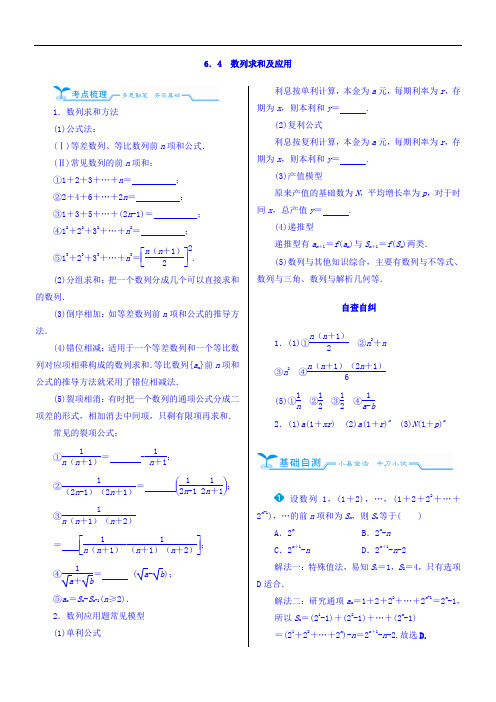 6.4 数列求和及应用
考点梳理 多思勤笔 夯实基础
1.数列求和方法
(1)公式法:
(Ⅰ)等差数列、等比数列前n项和公式.
(Ⅱ)常见数列的前n项和:
①1+2+3+…+n= ;
②2+4+6+…+2n= ;
③1+3+5+…+(2n-1)= ;
④1²+2²+3²+…+n²= ;
⑤1³+2³+3³+…+n³=[n(n+1)/2]².
(2)分组求和:把一个数列分成几个可以直接求和
的数列.
(3)倒序相加:如等差数列前n项和公式的推导方
法.
(4)错位相减:适用于一个等差数列和一个等比数
列对应项相乘构成的数列求和.等比数列{aₙ}前n项和
公式的推导方法就采用了错位相减法.
(5)裂项相消:有时把一个数列的通项公式分成二
项差的形式,相加消去中间项,只剩有限项再求和.
常见的裂项公式:
①1/n(n+1)= -1/(n+1);
②1/(2n-1)(2n+1)= (1/(2n-1)-1/(2n+1));
③1/n(n+1)(n+2)
= [1/n(n+1)-1/(n+1)(n+2)];
④1/(√a+√b)= (√a-√b);
⑤aₙ=Sₙ-Sₙ₋₁(n≥2).
2.数列应用题常见模型
(1)单利公式
利息按单利计算,本金为a元,每期利率为r,存
期为x,则本利和y= .
(2)复利公式
利息按复利计算,本金为a元,每期利率为r,存
期为x,则本利和y= .
(3)产值模型
原来产值的基础数为N,平均增长率为p,对于时
间x,总产值y= .
(4)递推型
递推型有aₙ₊₁=f(aₙ)与Sₙ₊₁=f(Sₙ)两类.
(5)数列与其他知识综合,主要有数列与不等式、
数列与三角、数列与解析几何等.
自查自纠
1.(1)①n(n+1)/2 ②n²+n
③n² ④n(n+1)(2n+1)/6
(5)①1/n ②1/2 ③1/2 ④1/(a-b)
2.(1)a(1+xr) (2)a(1+r)ˣ (3)N(1+p)ˣ
基础自测
1 设数列1,(1+2),…,(1+2+2²+…+
2ⁿ⁻¹),…的前n项和为Sₙ,则Sₙ等于( )
A.2ⁿ B.2ⁿ-n
C.2ⁿ⁺¹-n D.2ⁿ⁺¹-n-2
解法一:特殊值法,易知S₁=1,S₂=4,只有选项
D适合.
解法二:研究通项aₙ=1+2+2²+…+2ⁿ⁻¹=2ⁿ-1,
所以Sₙ=(2¹-1)+(2²-1)+…+(2ⁿ-1)
=(2¹+2²+…+2ⁿ)-n=2ⁿ⁺¹-n-2.故选D.